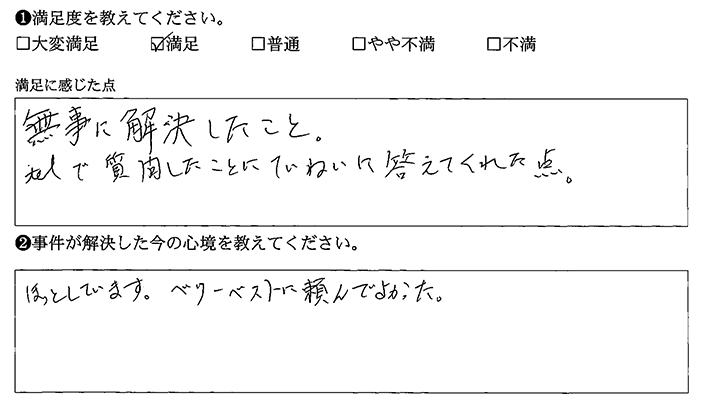 ❶満足度を教えてください。
□大変満足 ☑満足 □普通 □やや不満 □不満
満足に感じた点
無事に解決したこと。
telで質問したことにていねいに答えてくれた点。
❷事件が解決した今の心境を教えてください。
ほっとしています。ベリーベストに頼んでよかった。